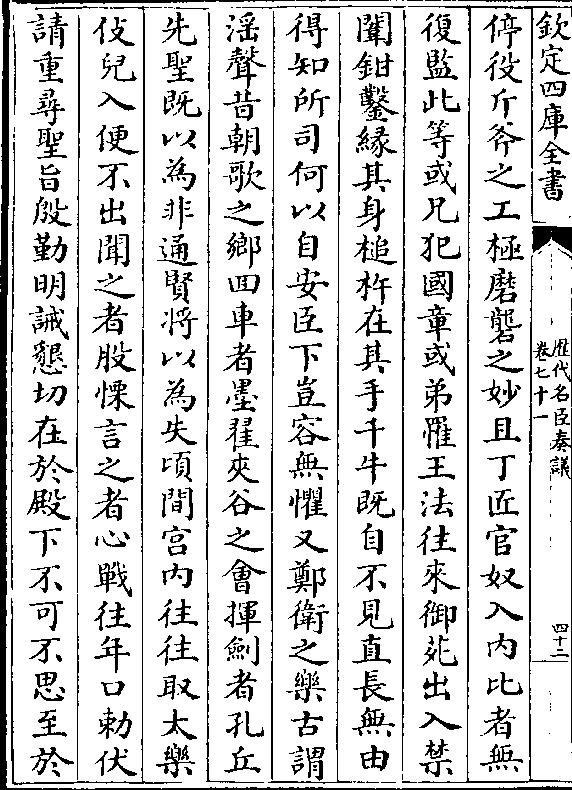 欽定四庫全書
歷代名臣奏議
卷七十一
四十二
停役斤斧之工極磨礱之妙且丁匠官奴入内比者無
復監此等或兄犯國章或弟罹王法往來御苑出入禁
闈鉗鑿縁其身槌杵在其手千牛既自不見直長無由
得知所司何以自安臣下豈容無懼又鄭衛之樂古謂
淫聲昔朝歌之鄉囬車者墨翟夾谷之會揮劍者孔丘
先聖既以為非通賢将以為失頃間宫内往往取太樂
伎兒入便不出聞之者股慄言之者心戰往年口勅伏
請重尋聖旨殷勤明誡懇切在於殿下不可不思至於